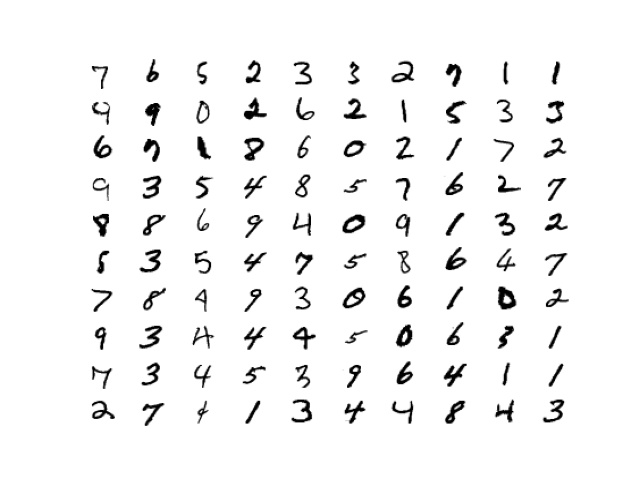 7 6 5 2 3 3 2 7 1 1
9 9 0 2 6 2 1 5 3 3
6 7 1 8 6 0 2 1 7 2
9 3 5 4 8 5 7 6 2 7
8 8 6 9 4 0 9 1 3 2
8 3 5 4 7 5 8 6 4 7
7 8 4 9 3 0 6 1 0 2
9 3 4 4 4 5 0 6 3 1
7 3 4 5 3 9 6 4 1 1
2 7 4 1 3 4 4 8 4 3